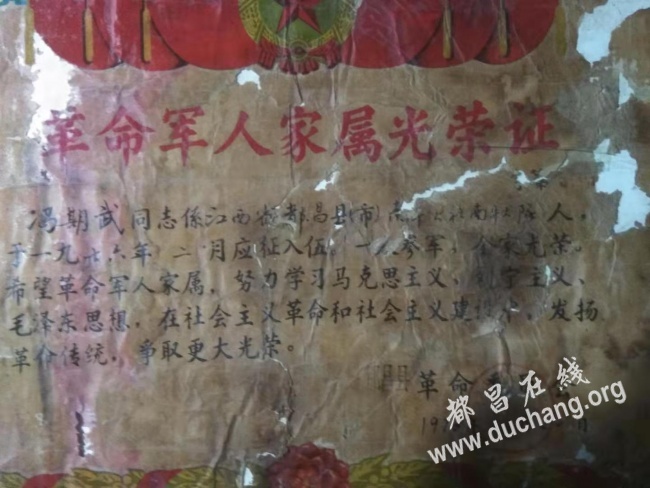 革命军人家属光荣证
冯朝武同志係江西省都昌县(市)南 人，
于一九七六年 二月应征入伍。一人参军，全家光荣。
希望革命军人家属，努力学习马克思主义、列宁主义、
毛泽东思想，在社会主义革命和社会主义建设中，发扬
革命传统，争取更大光荣。
革命
都昌在线
www.duchang.org